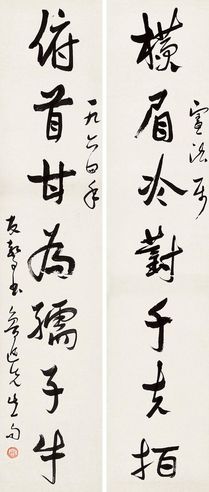 橫眉冷對千夫指
俯首甘為孺子牛
一九六四年
書魯迅先生句